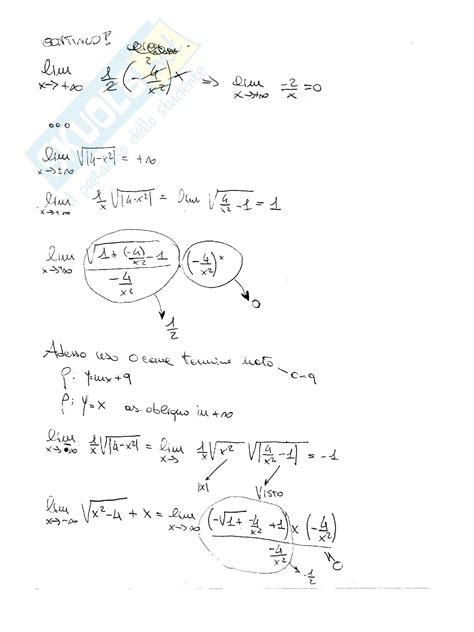 CONTINUO?
lim x→+∞ 1/2 (-4/x²) x ⇒ lim x→+∞ -2/x = 0
SKUOLA
il paradiso dello studente
...
lim x→±∞ √|4-x²| = +∞
lim x→+∞ 1/x √|4-x²| = lim √|4/x² - 1| = 1
lim x→+∞ (√(1+(-4)/x²) - 1)/(-4/x²) · (-4/x²) x
0
1/2
Adesso uso 0 come termine noto
0=q
r: y=mx+q
r: y=x as. obliquo in +∞
lim x→-∞ 1/x √|4-x²| = lim x→ 1/x √x² √|4/x² - 1| = -1
|x| Visto
lim x→-∞ √x²-4 + x = lim x→-∞ (-√1+ -4/x² +1)/(-4/x²) x (-4/x²)
0
-1/2